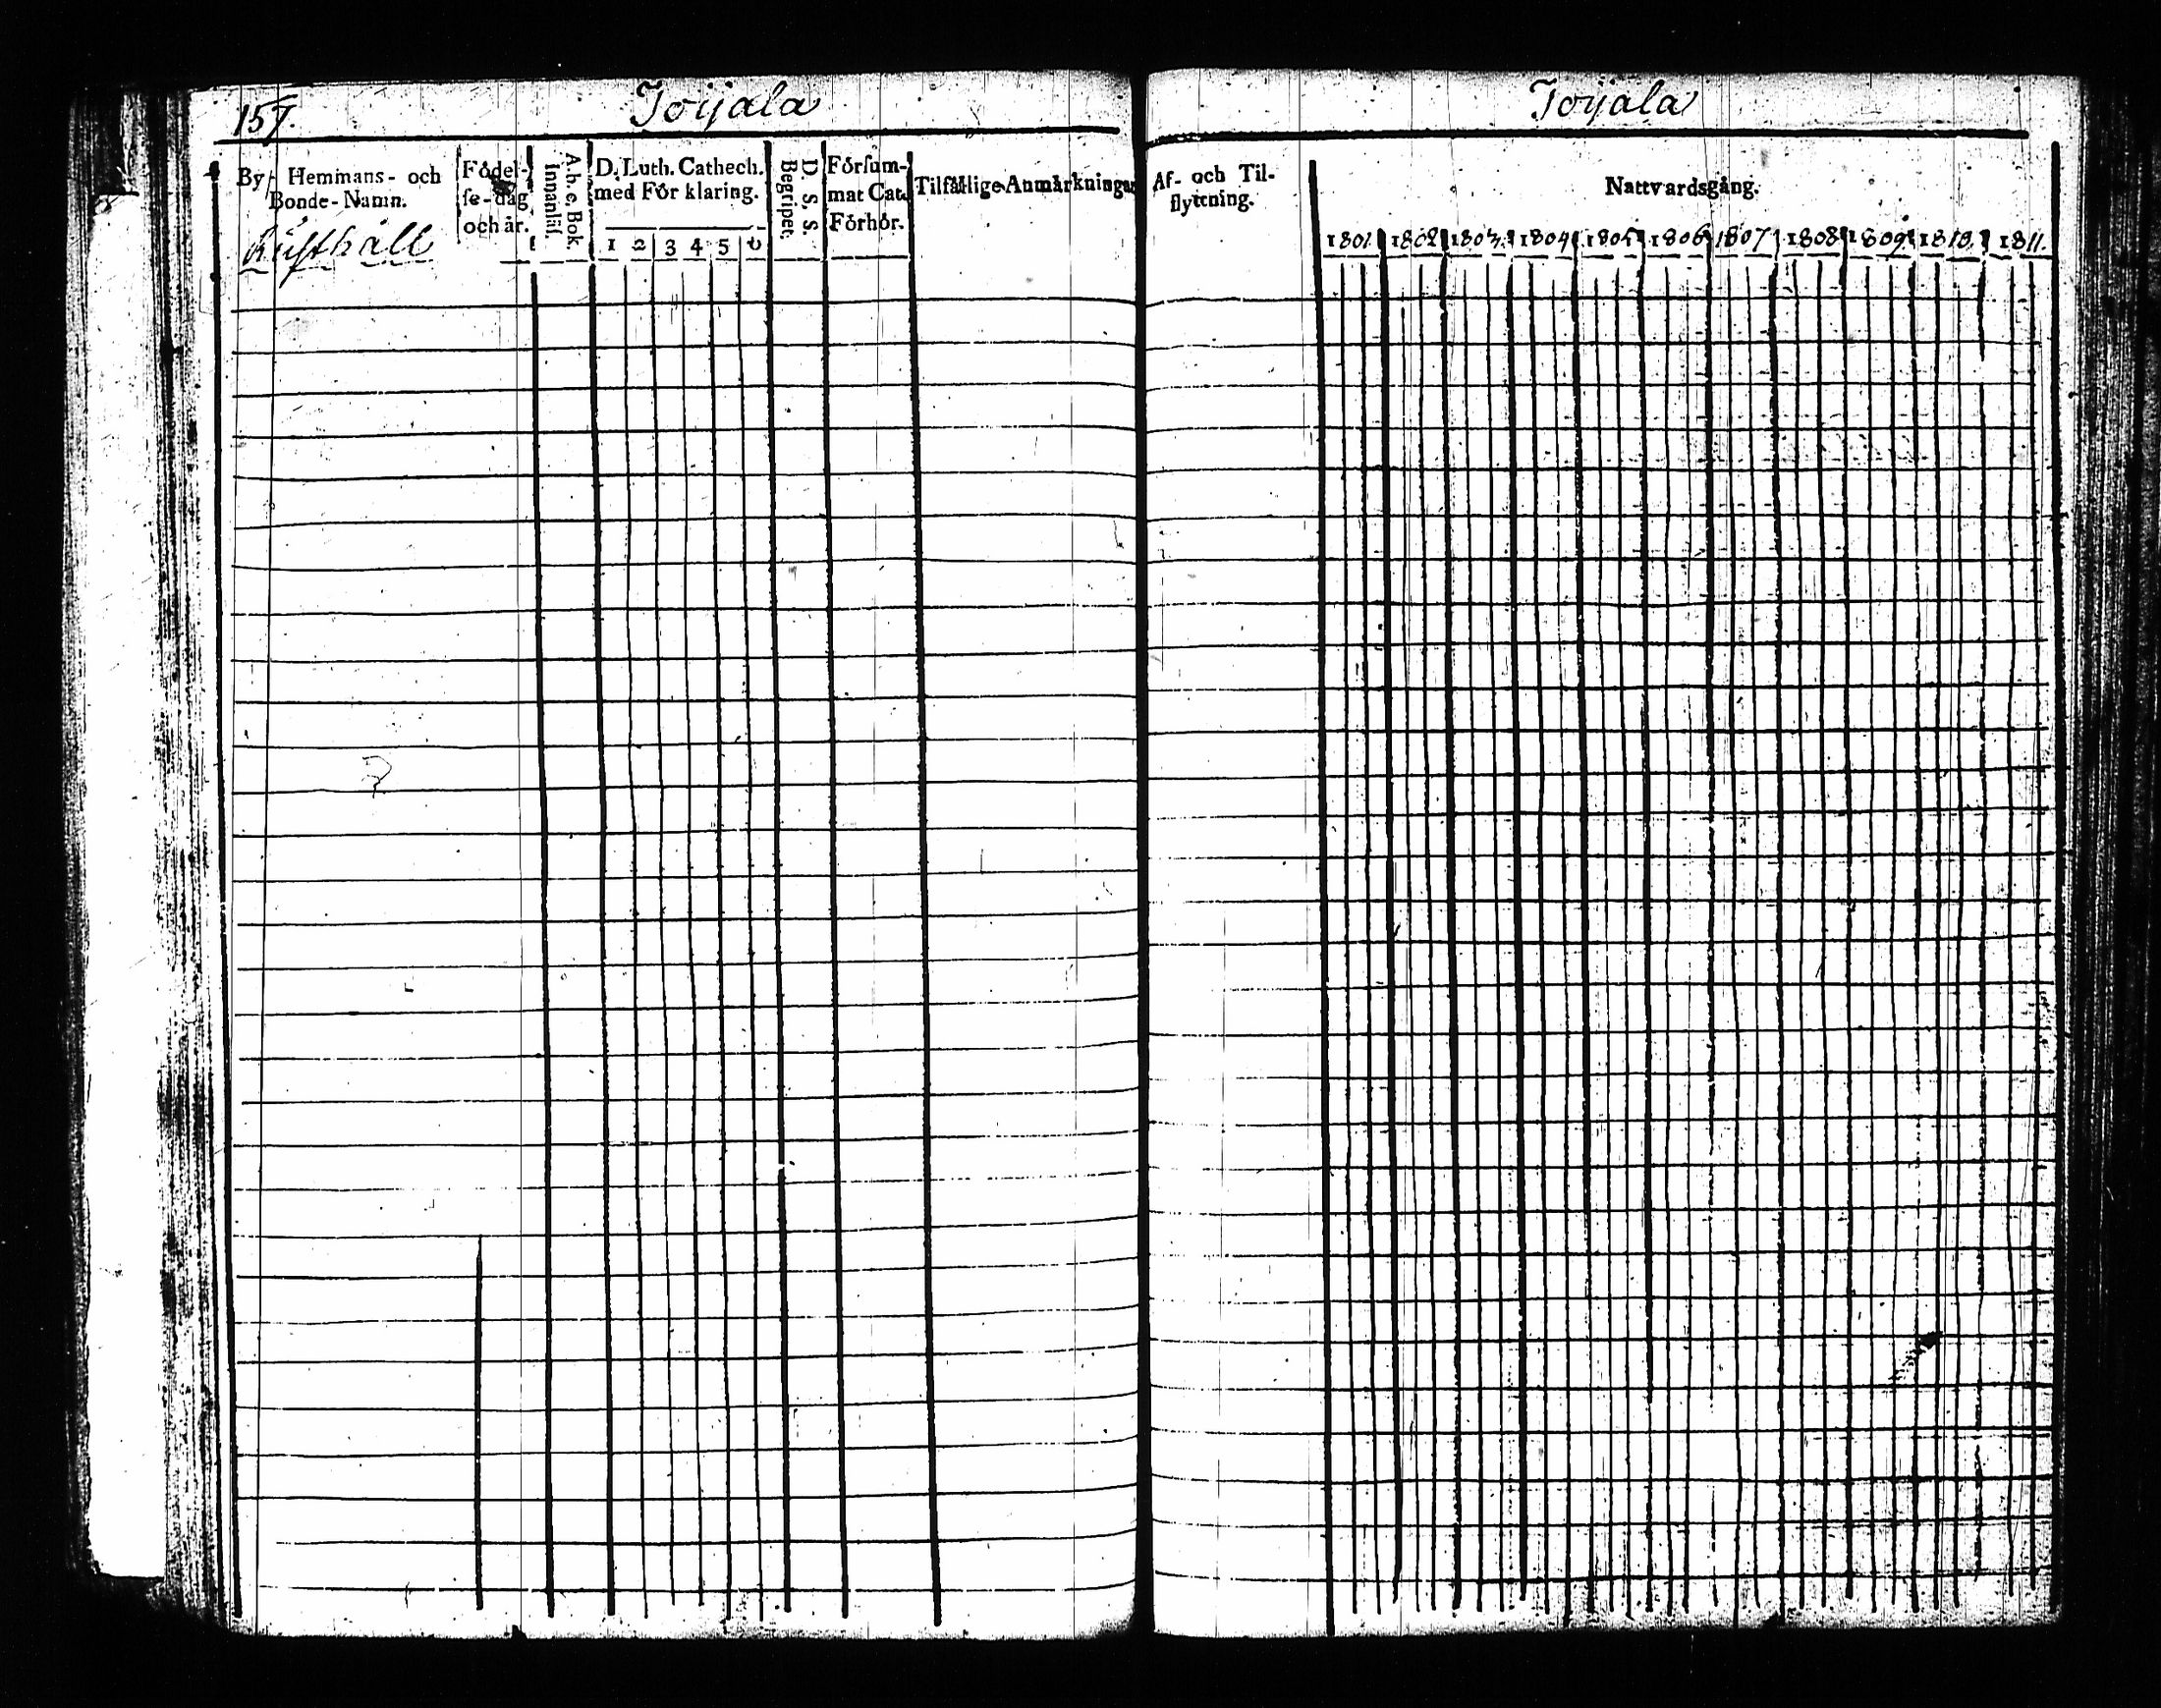 157.
Toijala
By- Hemmans- och
Bonde-Namn.
Födel-
se-dag
och år.
A.b.c. Bok.
Innanläs.
D. Luth. Cathech.
med För klaring.
1 2 3 4 5 6
D. S. S.
Begriper.
Försum-
mat Cat.
Förhör.
Tilfällige Anmärkningar
Rusthåll
Toijala
Af- och Til-
flyttning.
Nattvardsgång.
1801. 1802 1803. 1804 1805 1806 1807 1808 1809. 1810. 1811.